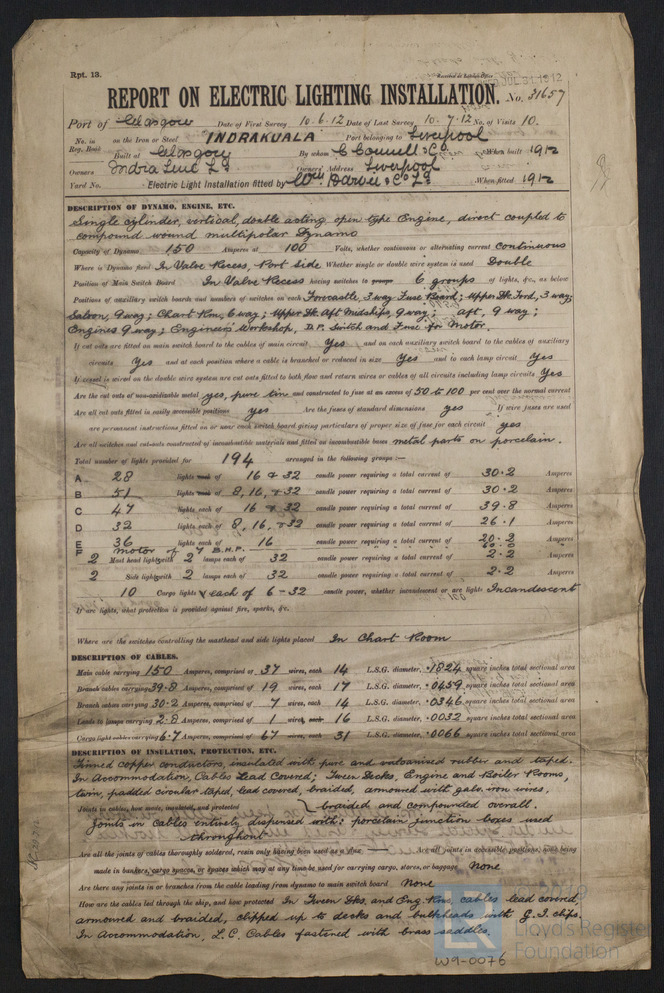 Rpt. 13.
JUL 31 1912
REPORT ON ELECTRIC LIGHTING INSTALLATION. No. 31657
Port of Glasgow Date of First Survey 10.6.12 Date of Last Survey 10.7.12 No. of Visits 10.
No. in Reg. Book on the Iron or Steel INDRAKUALA Port belonging to Liverpool
Built at Glasgow By whom C Connell & Co. When built 1912
Owners Indra Line Ld. Owners' Address Liverpool
Yard No. Electric Light Installation fitted by Wm Harvie & Co Ld When fitted 1912
DESCRIPTION OF DYNAMO, ENGINE, ETC.
Single cylinder, vertical, double acting open type Engine, direct coupled to
compound wound multipolar Dynamo
Capacity of Dynamo 150 Amperes at 100 Volts, whether continuous or alternating current Continuous
Where is Dynamo fixed In Valve Recess, Port Side Whether single or double wire system is used Double
Position of Main Switch Board In Valve Recess having switches to groups 6 groups of lights, &c., as below
Positions of auxiliary switch boards and numbers of switches on each Forecastle, 3 way Fuse Board; Upper Dk Ford, 3 way;
Saloon, 9 way; Chart Rm, 6 way; Upper Dk Aft Midships, 9 way; aft, 9 way;
Engines 9 way; Engineers Workshop, D.P. Switch and Fuse for Motor.
If cut outs are fitted on main switch board to the cables of main circuit Yes and on each auxiliary switch board to the cables of auxiliary
circuits Yes and at each position where a cable is branched or reduced in size Yes and to each lamp circuit Yes
If vessel is wired on the double wire system are cut outs fitted to both flow and return wires or cables of all circuits including lamp circuits Yes
Are the cut outs of non-oxidizable metal yes, pure tin and constructed to fuse at an excess of 50 to 100 per cent over the normal current
Are all cut outs fitted in easily accessible positions yes Are the fuses of standard dimensions yes If wire fuses are used
are permanent instructions fitted on or near each switch board giving particulars of proper size of fuse for each circuit yes
Are all switches and cut-outs constructed of incombustible materials and fitted on incombustible bases metal parts on porcelain.
Total number of lights provided for 194 arranged in the following groups :—
A 28 lights each of 16 & 32 candle power requiring a total current of 30.2 Amperes
B 51 lights each of 8, 16, & 32 candle power requiring a total current of 30.2 Amperes
C 47 lights each of 16 & 32 candle power requiring a total current of 39.8 Amperes
D 32 lights each of 8, 16, & 32 candle power requiring a total current of 26.1 Amperes
E 36 lights each of 16 candle power requiring a total current of 20.2 Amperes
F motor of 7 B.H.P.
2 Mast head light with 2 lamps each of 32 candle power requiring a total current of 2.2 Amperes
2 Side light with 2 lamps each of 32 candle power requiring a total current of 2.2 Amperes
10 Cargo lights each of 6-32 candle power, whether incandescent or arc lights Incandescent
If arc lights, what protection is provided against fire, sparks, &c.
Where are the switches controlling the masthead and side lights placed In Chart Room
DESCRIPTION OF CABLES.
Main cable carrying 150 Amperes, comprised of 37 wires, each 14 L.S.G. diameter, .1824 square inches total sectional area
Branch cables carrying 39.8 Amperes, comprised of 19 wires, each 17 L.S.G. diameter, .0459 square inches total sectional area
Branch cables carrying 30.2 Amperes, comprised of 7 wires, each 14 L.S.G. diameter, .0346 square inches total sectional area
Leads to lamps carrying 2.8 Amperes, comprised of 1 wires, each 16 L.S.G. diameter, .0032 square inches total sectional area
Cargo light cables carrying 6.7 Amperes, comprised of 67 wires, each 31 L.S.G. diameter, .0066 square inches total sectional area
DESCRIPTION OF INSULATION, PROTECTION, ETC.
Tinned copper conductors, insulated with pure and vulcanised rubber and taped.
In Accommodation, Cables Lead Covered; Tween Decks, Engine and Boiler Rooms,
twin, padded circular taped, lead covered, braided, armoured with galv. iron wires.
Joints in cables, how made, insulated, and protected braided and compounded overall.
Joints in Cables entirely dispensed with: porcelain junction boxes used
throughout
Are all the joints of cables thoroughly soldered, resin only having been used as a flux — Are all joints in accessible positions, none being
made in bunkers, cargo spaces, or spaces which may at any time be used for carrying cargo, stores, or baggage None
Are there any joints in or branches from the cable leading from dynamo to main switch board None
How are the cables led through the ship, and how protected In Tween Dks, and Eng. Rms, cables lead covered,
armoured and braided, clipped up to decks and bulkheads with G.I. clips.
In Accommodation, L.C. Cables fastened with brass saddles.
© 2019
LR
Lloyd's Register
Foundation
W9-0076